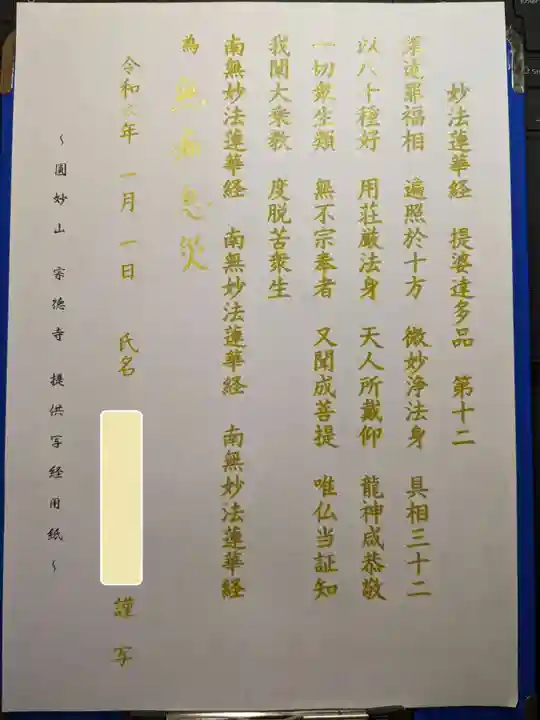 妙法蓮華経 提婆達多品 第十二
深達罪福相 遍照於十方 微妙浄法身 具相三十二
以八十種好 用荘厳法身 天人所戴仰 龍神咸恭敬
一切衆生類 無不宗奉者 又聞成菩提 唯仏当証知
我闡大乗教 度脱苦衆生
南無妙法蓮華経 南無妙法蓮華経 南無妙法蓮華経
為 無病息災
令和六年 一月 一日 氏名 謹写
~ 圓妙山 宗徳寺 提供写経用紙 ~